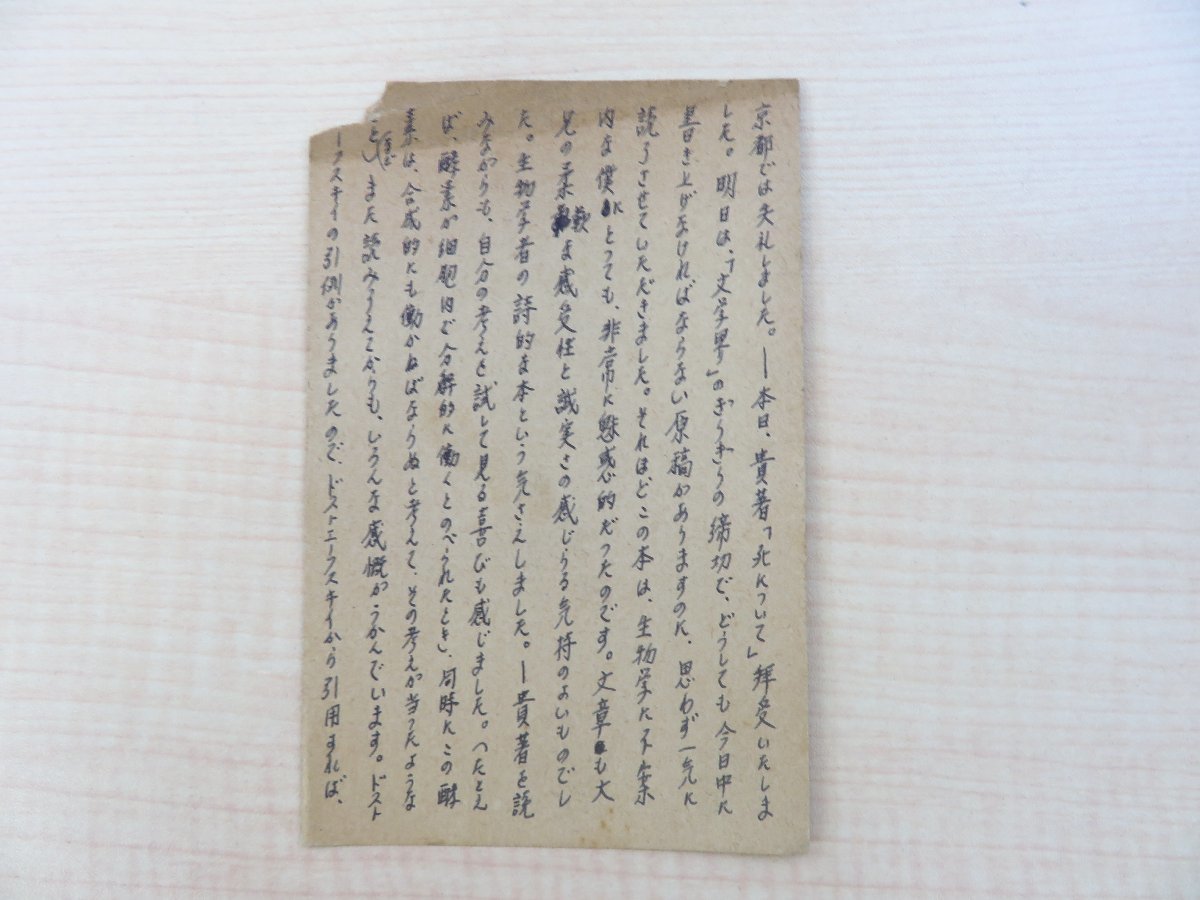 京都では失礼しました。―本日、貴著「死について」拝受いたしま
した。明日は、「文学界」のぎりぎりの締切で、どうしても今日中に
書き上げなければならない原稿がありますのに、思わず一気に
読了させていただきました。それほどこの本は、生物学に不案
内な僕にとっても、非常に魅惑的だったのです。文章も大
兄の柔軟な感受性と誠実さの感じらる気持のよいものでし
た。生物学者の詩的な本という気さえしました。―貴著を読
みながらも、自分の考えを試して見る喜びも感じました。(たとえ
ば、酵素が細胞内で分解的に働くとのべられたとき、同時にこの酵
素は、合成的にも働かねばならぬと考えて、その考えが当ったような
こと)など また読みうえてからも、いろんな感慨がうかんでいます。ドスト
ーフスキイの引例がありましたので、ドストエーフスキイから引用すれば、